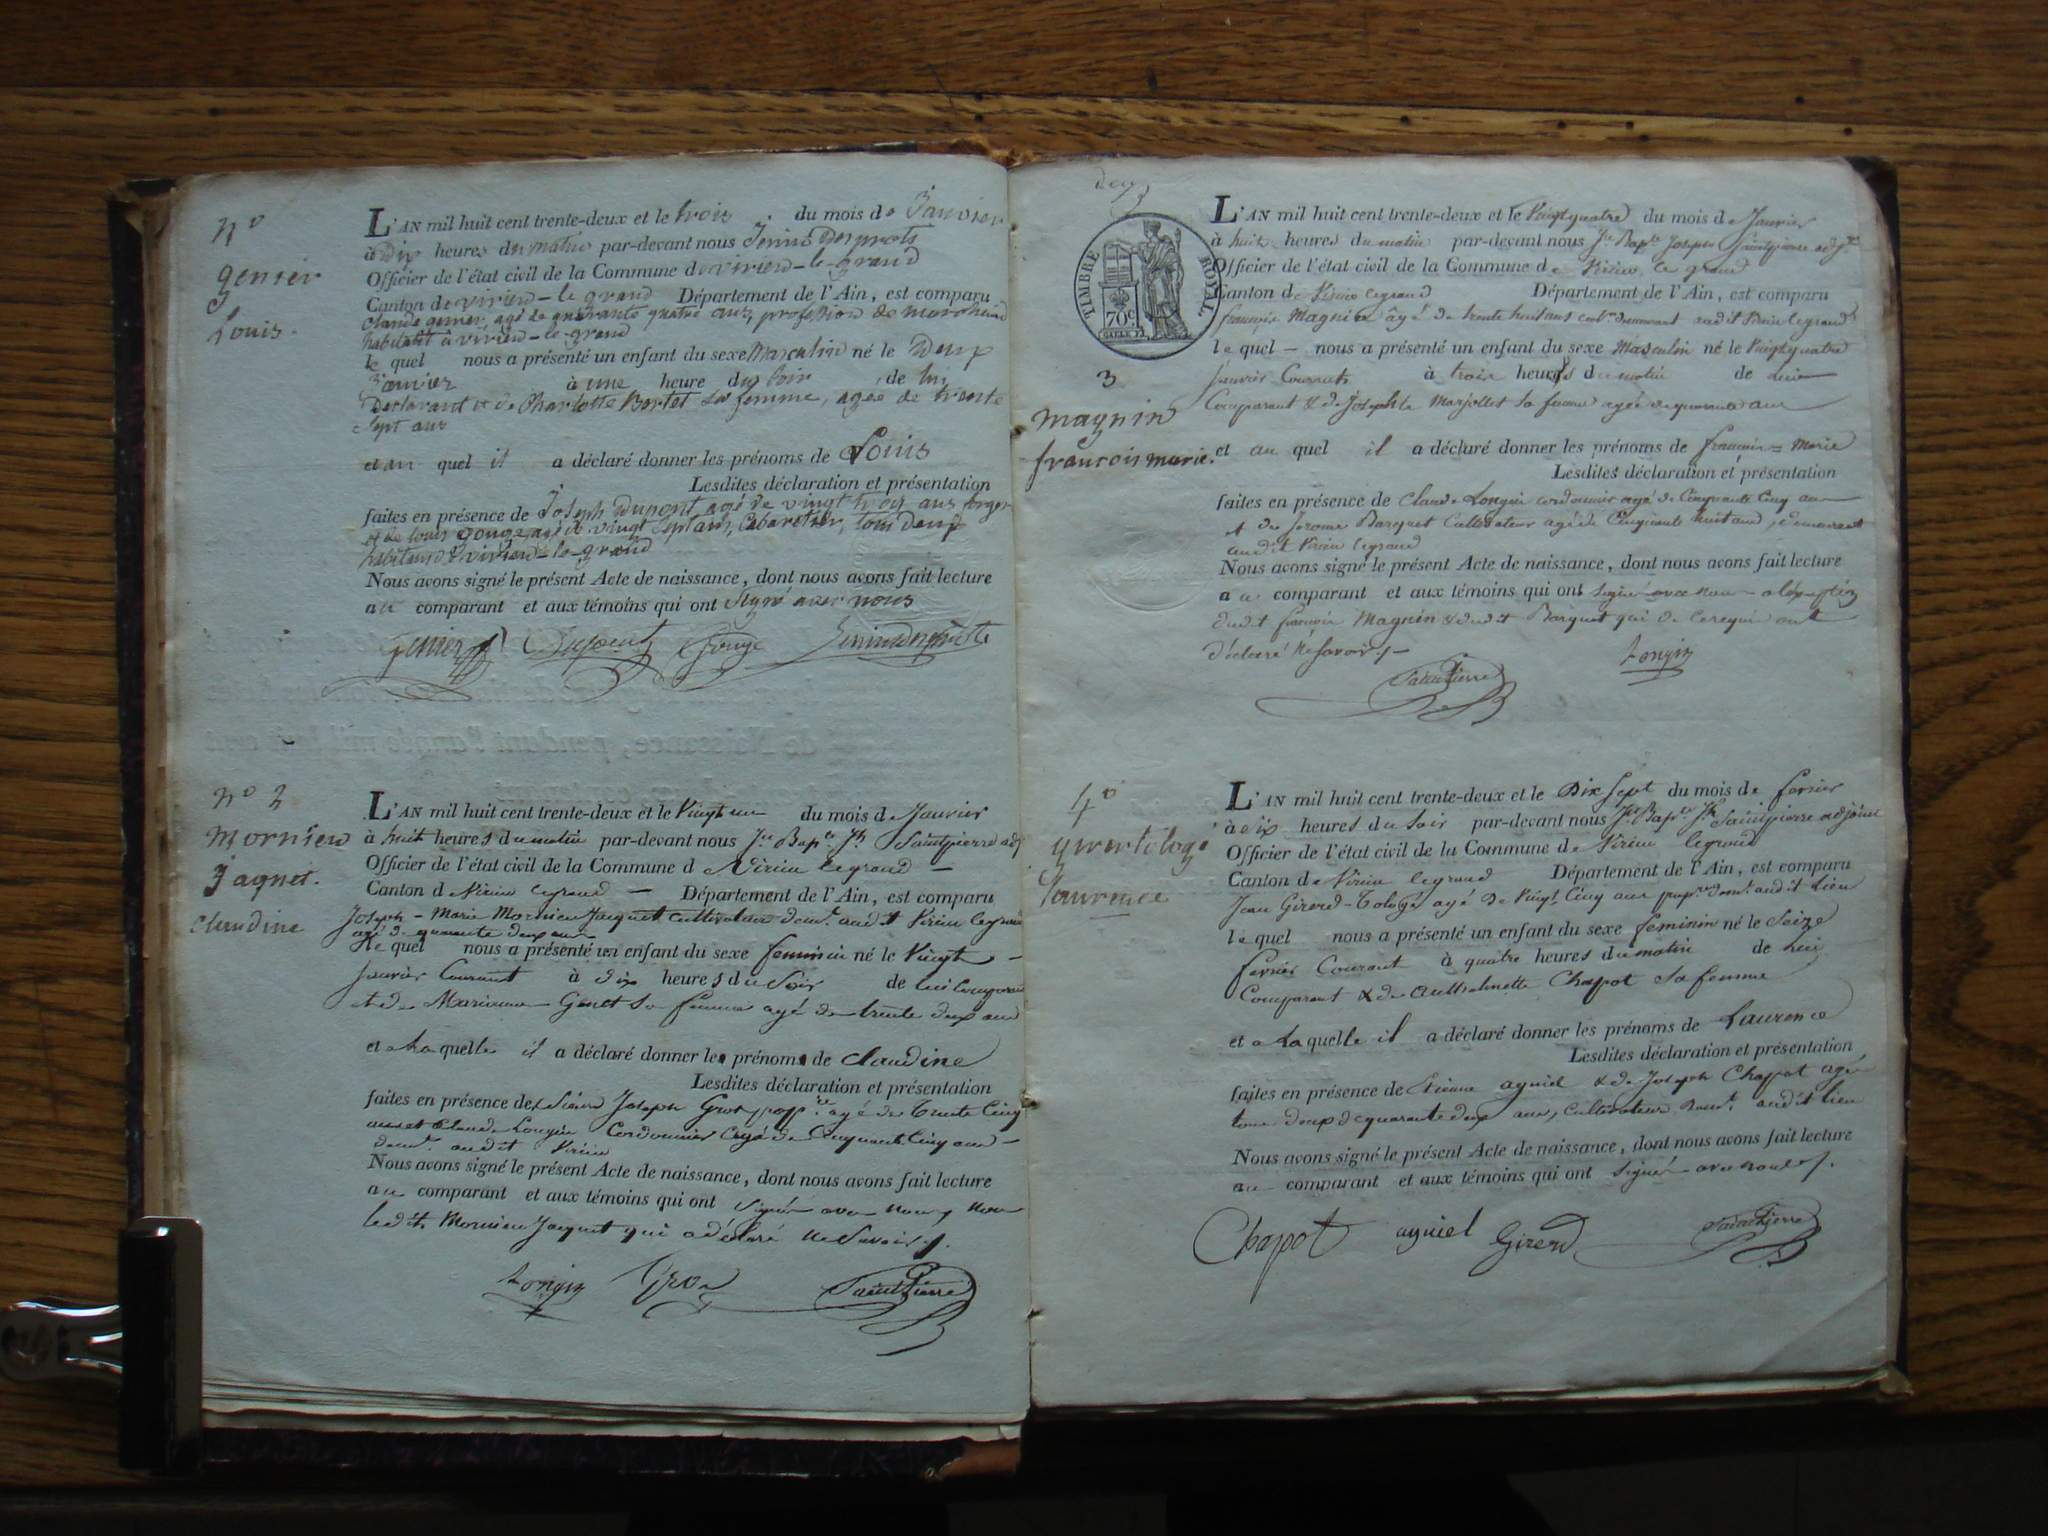 N°
genier
Louis.
L'AN mil huit cent trente-deux et le trois du mois de Janvier
à Dix heures du matin par-devant nous
Officier de l'état civil de la Commune de virieu-le-grand
Canton de virieu-le grand Département de l'Ain, est comparu
Claude genier, agé de quarante quatre ans, profession de marechand
habitant à virieu-le-grand
le quel nous a présenté un enfant du sexe Masculin né le Deux
Janvier à une heure du soir de lui
Déclarant et de Charlotte Bertet sa femme, agée de trente
Sept ans
et au quel il a déclaré donner les prénoms de Louis
Lesdites déclaration et présentation
faites en présence de Joseph Dupont agé de vingt trois ans
et de louis gouge agé de vingt sept ans, Cabaretier, tous Deux
habitans à virieu-le-grand
Nous avons signé le présent Acte de naissance, dont nous avons fait lecture
au comparant et aux témoins qui ont signé avec nous
Genier Dupont Gouge
N° 2
Mornieu
Jaquet.
claudine
L'AN mil huit cent trente-deux et le Vingt un du mois de Janvier
à huit heures du matin par-devant nous Jn Bapte Jh Saintpierre adj
Officier de l'état civil de la Commune de Virieu legrand
Canton de Virieu legrand Département de l'Ain, est comparu
Joseph-Marie Mornieu Jacquet cultivateur demt audit Virieu legrand
agé de quarante deux ans
le quel nous a présenté un enfant du sexe feminin né le Vingt
Janvier Courant à dix heures du Soir de lui Comparant
et de Marianne Genet sa femme agé de trente deux ans
et a Laquelle il a déclaré donner les prénoms de claudine
Lesdites déclaration et présentation
faites en présence de Joseph agé de Trente Cinq
ans et Claude Longin Cordonnier agé de Cinquante Cinq ans
demt audit Virieu
Nous avons signé le présent Acte de naissance, dont nous avons fait lecture
au comparant et aux témoins qui ont signé avec nous, non
ledit Mornieu Jacquet qui a déclaré ne Savoir./.
Longin Gros SaintPierre
deux
TIMBRE ROYAL
70c.
3
magnin
francois marie.
L'AN mil huit cent trente-deux et le Vingtquatre du mois de Janvier
à huit heures du matin par-devant nous Jn Bapte Joseph Saintpierre adjt
Officier de l'état civil de la Commune de Virieu le grand
Canton de Virieu legrand Département de l'Ain, est comparu
françois Magnin âgé de trente huit ans demeurant audit Virieu legrand
le quel nous a présenté un enfant du sexe Masculin né le Vingtquatre
Janvier Courant à trois heures du matin de lui
Comparant & de Josephte Marjollet sa femme agée de quarante ans
et au quel il a déclaré donner les prénoms de françois=marie
Lesdites déclaration et présentation
faites en présence de Claude Longin cordonnier agé de Cinquante Cinq ans
et de Jerome Barquet Cultivateur agé de Cinquante huit ans, demeurant
audit Virieu legrand
Nous avons signé le présent Acte de naissance, dont nous avons fait lecture
au comparant et aux témoins qui ont signé avec nous a l'exception
dudit françois Magnin & dudit Barquet qui de ce requis ont
déclaré ne savoir./.
Longin
SaintPierre
4°
Laurence
L'AN mil huit cent trente-deux et le Dix Sept du mois de fevrier
à six heures du soir par-devant nous Jn Bapte Jh Saintpierre adjoint
Officier de l'état civil de la Commune de Virieu legrand
Canton de Virieu legrand Département de l'Ain, est comparu
Jean Girerd-Tologé agé de Vingt Cinq ans demt audit Lieu
le quel nous a présenté un enfant du sexe feminin né le Seize
fevrier Courant à quatre heures du matin de lui
Comparant & de Anthelmette Chapot Sa femme
et a Laquelle il a déclaré donner les prénoms de Laurence
Lesdites déclaration et présentation
faites en présence de Etienne ayniel & de Joseph Chapot agés
tous deux de quarante deux ans, Cultivateurs demt audit lieu
Nous avons signé le présent Acte de naissance, dont nous avons fait lecture
au comparant et aux témoins qui ont signé avec nous./.
Chapot ayniel Girerd SaintPierre